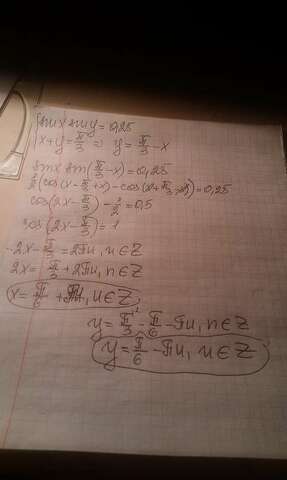 sinx siny = 0,25
x+y = π/3 => y = π/3 - x
sinx sin(π/3 - x) = 0,25
1/2(cos(x - π/3 + x) - cos(x + π/3 - x)) = 0,25
cos(2x - π/3) - 1/2 = 0,5
cos(2x - π/3) = 1
2x - π/3 = 2πn, n∈Z
2x = π/3 + 2πn, n∈Z
x = π/6 + πn, n∈Z
y = π/3 - π/6 - πn, n∈Z
y = π/6 - πn, n∈Z